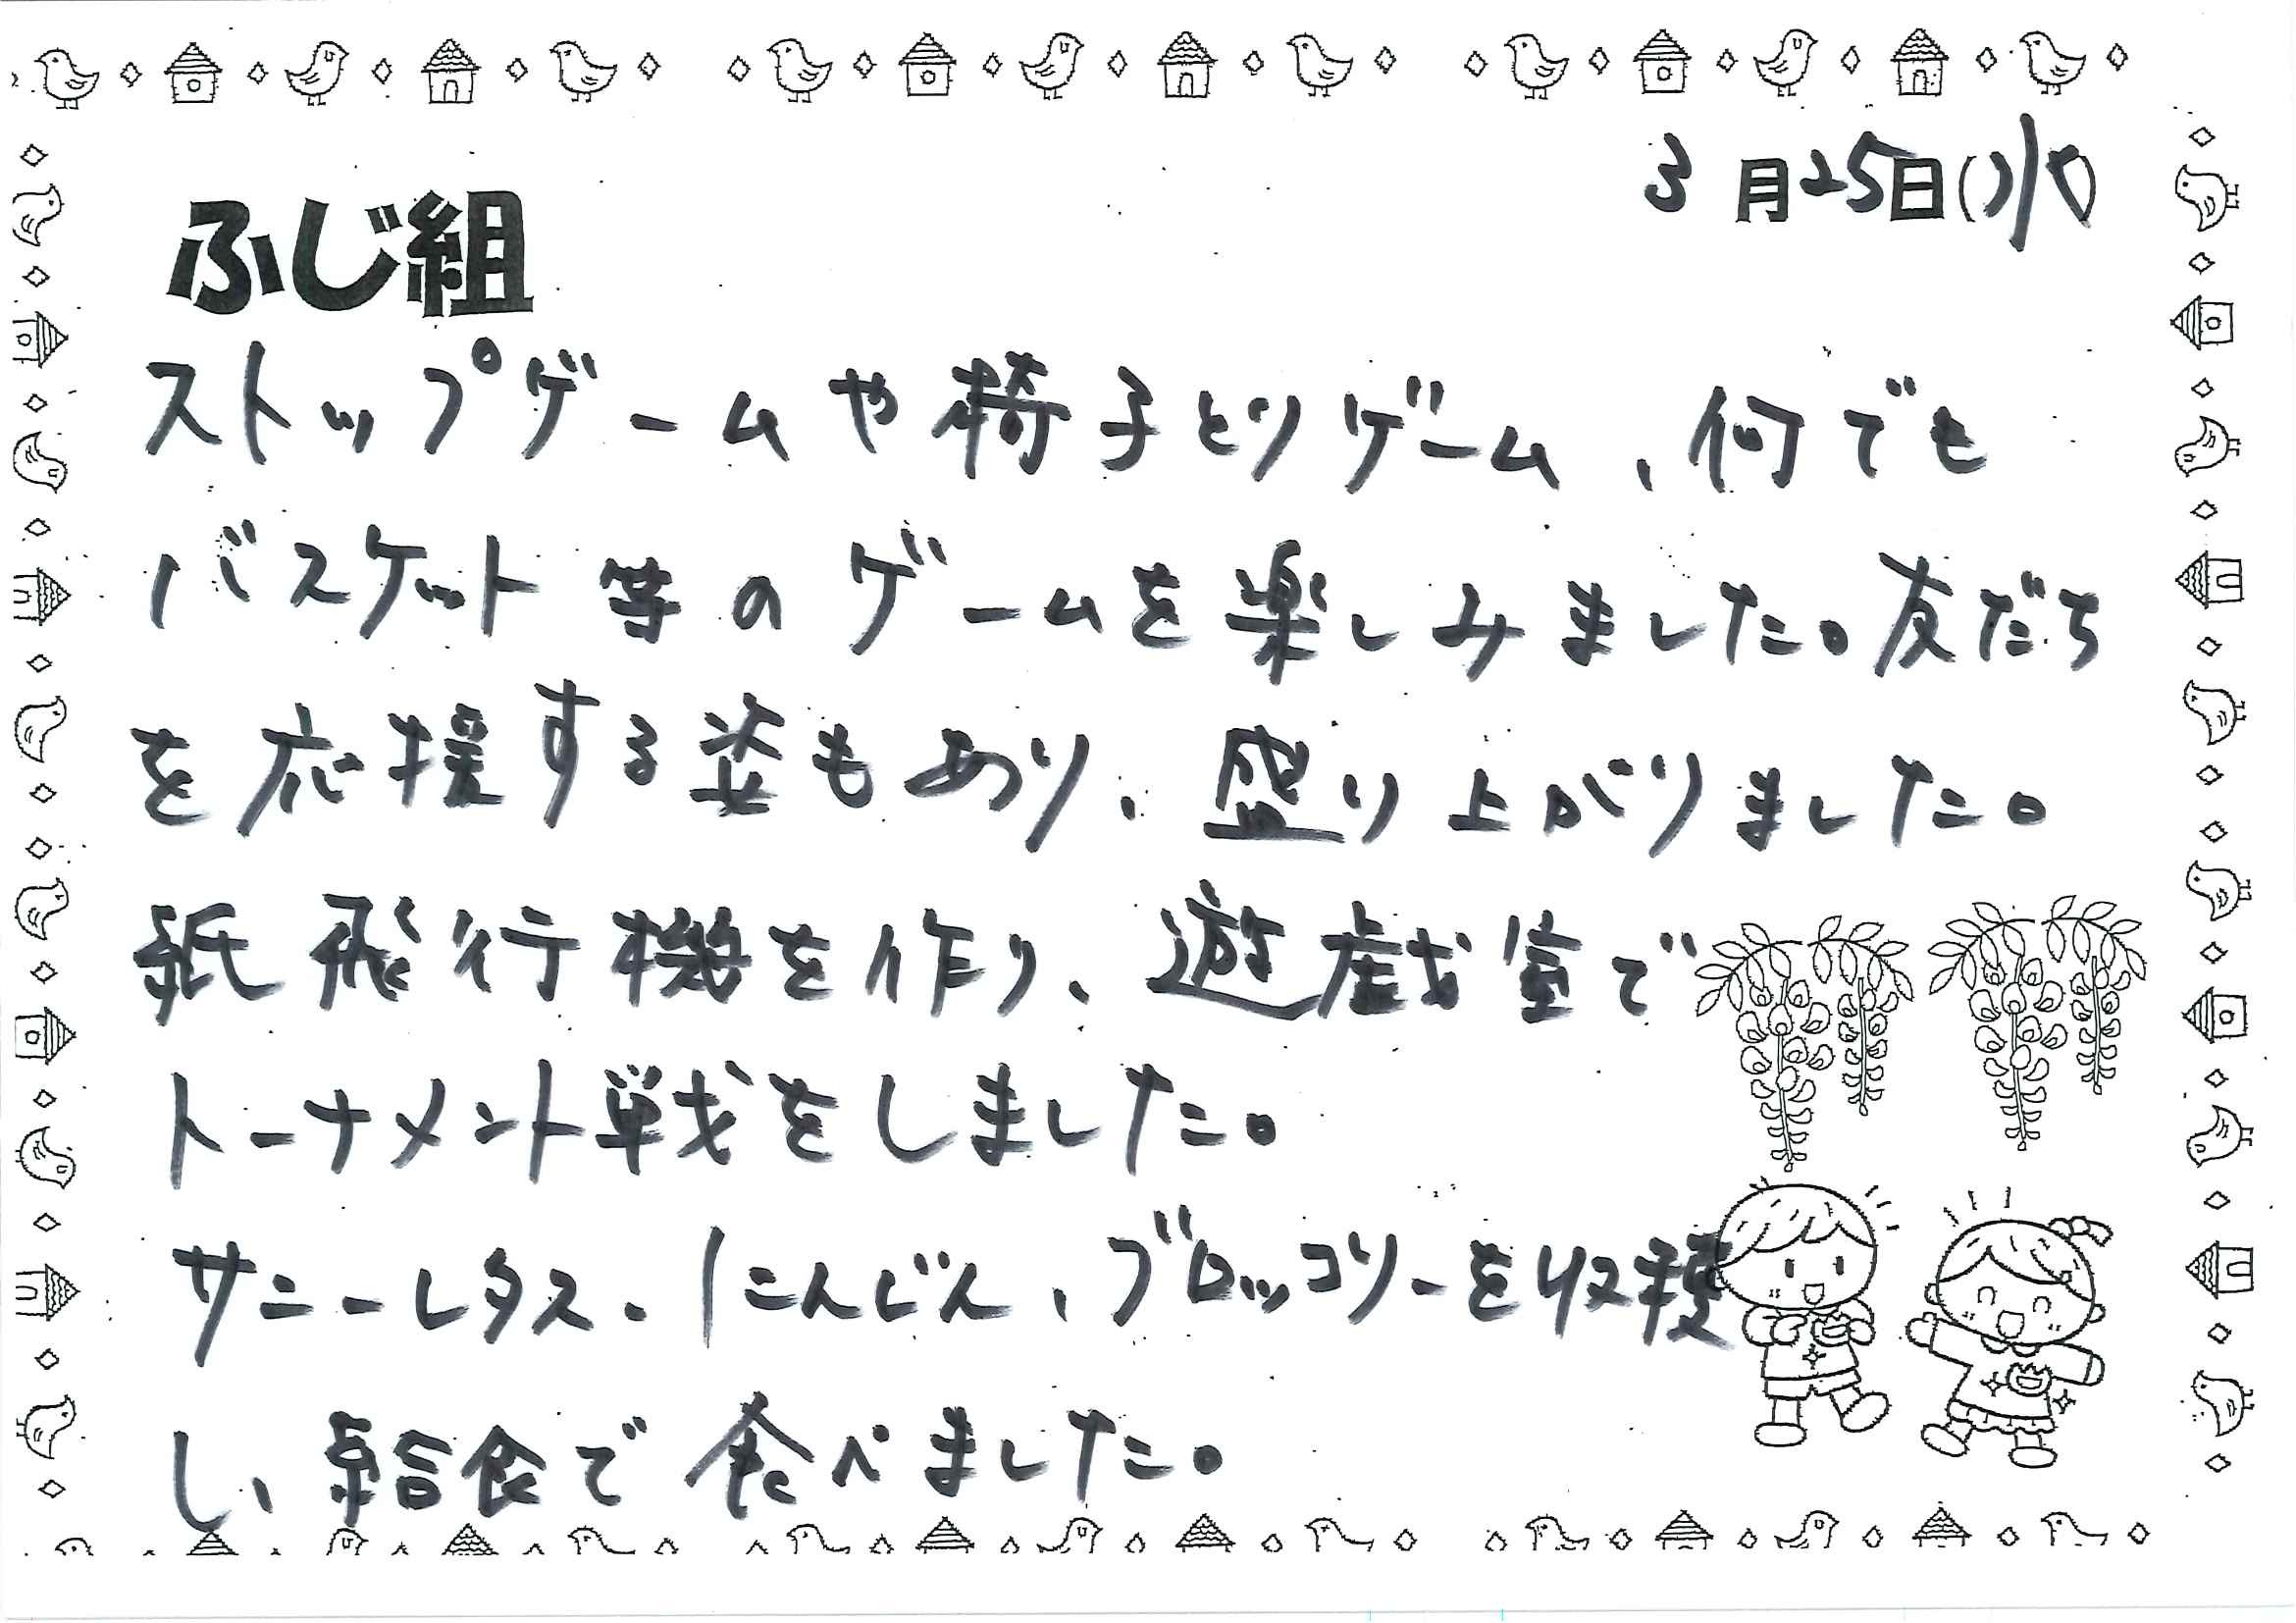 3月25日(水)
ふじ組
ストップゲームや椅子とりゲーム、何でも
バスケット等のゲームを楽しみました。友だち
を応援する姿もあり、盛り上がりました。
紙飛行機を作り、遊戯室で
トーナメント戦をしました。
サニーレタス、にんじん、ブロッコリーを収穫
し、給食で食べました。